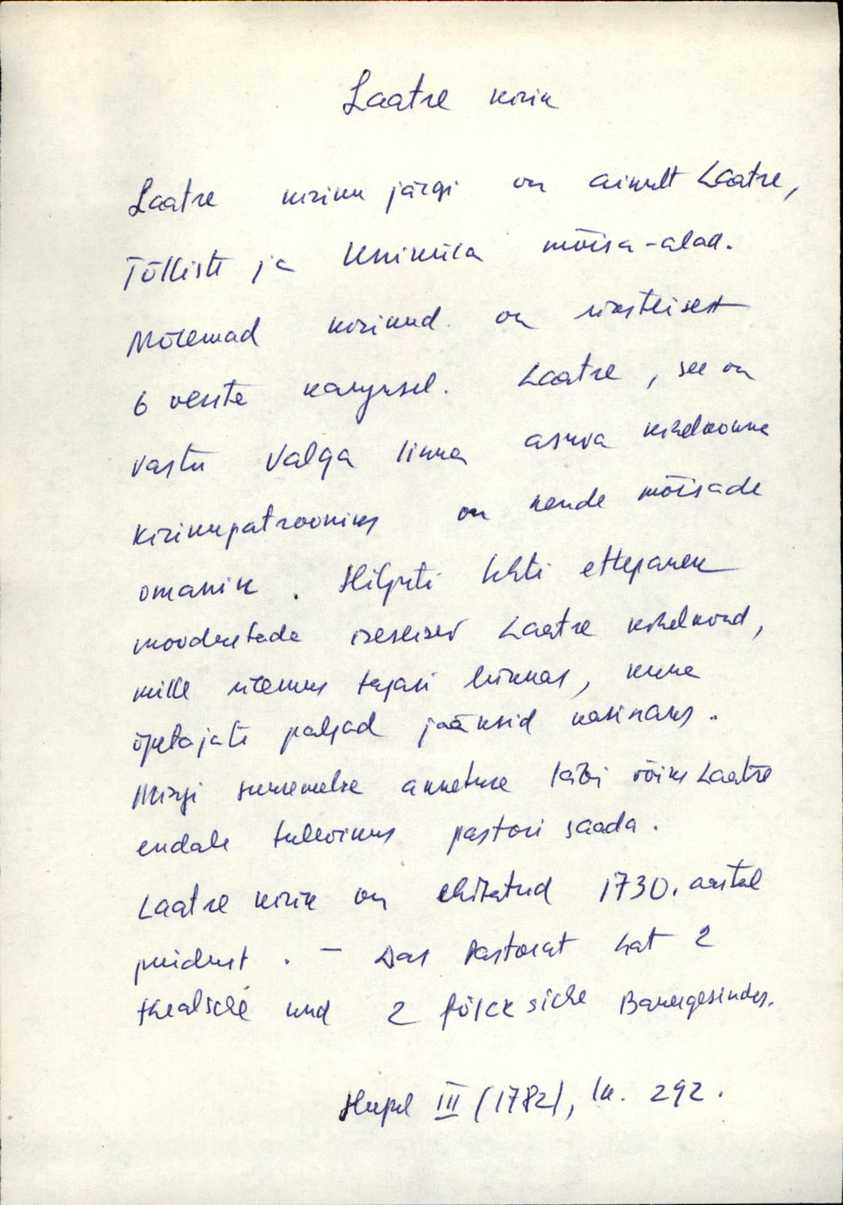 Laatre kirik
Laatre kiriku järgi on ainult Laatre,
Tõlliste ja Unikula mõisa-alad.
Mõlemad kirikud on üksteisest
6 versta kaugusel. Laatre, see on
vastu Valga linna asuva kihelkonna
kirikupatrooniks on nende mõisade
omanik. Hiljuti tehti ettepanek
moodustada iseseisev Laatre kihelkond,
mille ülemus tagasi lükkas, kuna
õpetajate palgad jääksid kasinaks.
Mingi suuremelse annetuse läbi võiks Laatre
endale tulevikus pastori saada.
Laatre kirik on ehitatud 1730. aastal
puidust. – Das Pastorat hat 2
thealsche und 2 fölcksche Bauergesinder.
Hupel III (1782), lk. 292.